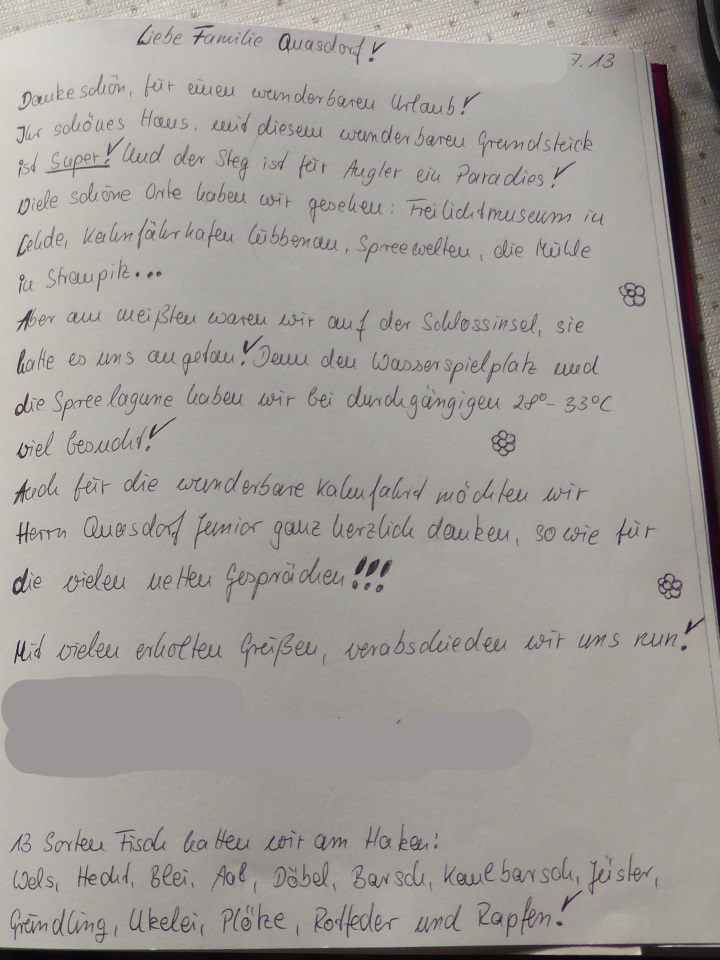 Liebe Familie Quasdorf!
7.13
Dankeschön, für einen wunderbaren Urlaub!
Ihr schönes Haus, mit diesem wunderbaren Grundstück
ist Super! Und der Steg ist für Angler ein Paradies!
Viele schöne Orte haben wir gesehen: Freilichtmuseum in
Lehde, Kahnfährhafen Lübbenau, Spreewelten, die Mühle
in Straupitz...
Aber am meißten waren wir auf der Schlossinsel, sie
hatte es uns angetan! Denn den Wasserspielplatz und
die Spreelagune haben wir bei durchgängigen 28°- 33°C
viel besucht!
Auch für die wunderbare Kahnfahrt möchten wir
Herrn Quasdorf Junior ganz herzlich danken, so wie für
die vielen netten Gesprächen!!!
Mit vielen erholten Grüßen, verabschieden wir uns nun!
13 Sorten Fisch hatten wir am Haken:
Wels, Hecht, Blei, Aal, Döbel, Barsch, Kaulbarsch, Jüster,
Gründling, Ukelei, Plötze, Rotfeder und Rapfen!